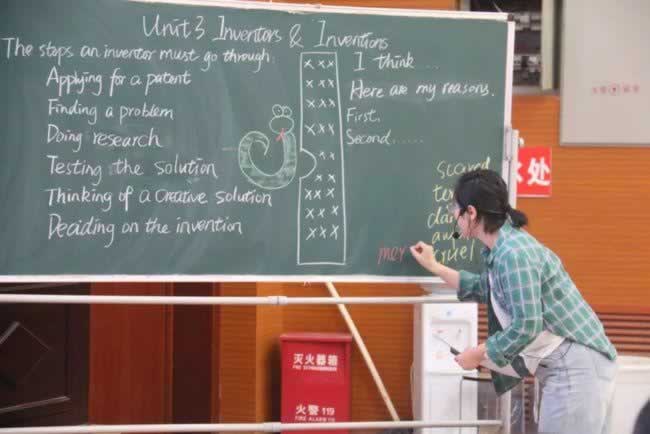 Unit 3 Inventors & Inventions
The steps an inventor must go through:
Applying for a patent
Finding a problem
Doing research
Testing the solution
Thinking of a creative solution
Deciding on the invention
x x x
x x x
x x x
x x x
x x x
x x x
x x x
x x x
x x x
I think....
Here are my reasons.
First,
Second.....
scared
cruel
mer
水处
灭火器箱
FIRE EXTINGUISHER BOX
火警119
FIRE ALARM 119